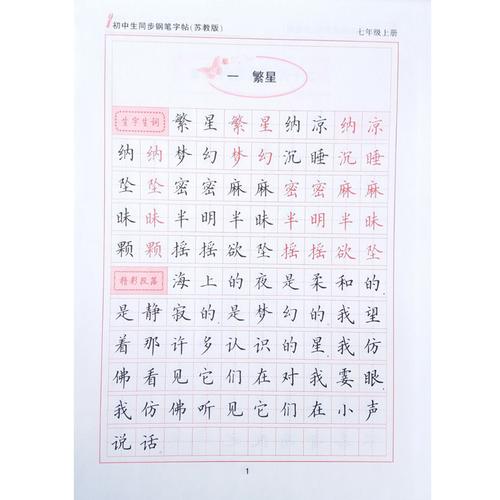 初中生同步钢笔字帖(苏教版)
七年级上册
一 繁星
生字生词 繁星繁星纳凉纳凉
纳纳梦幻梦幻沉睡沉睡
坠坠密密麻麻密密麻麻
昧昧半明半昧半明半昧
颗颗摇摇欲坠摇摇欲坠
精彩段落 海上的夜是柔和的
是静寂的是梦幻的我望
着那许多认识的星我仿
佛看见它们在对我霎眼
我仿佛听见它们在小声
说话
1